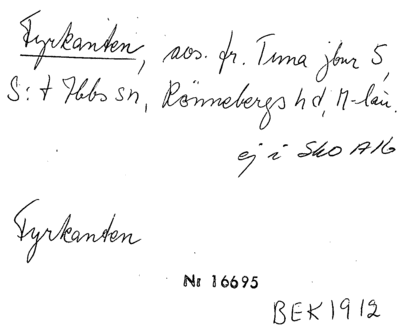 Fyrkanten, avs. fr. Tuna jbnr 5,
S:t Ibbs sn, Rönnebergs hd, M-län.
ej i Sko AK6
Fyrkanten
Nr 16695
BEK 1912